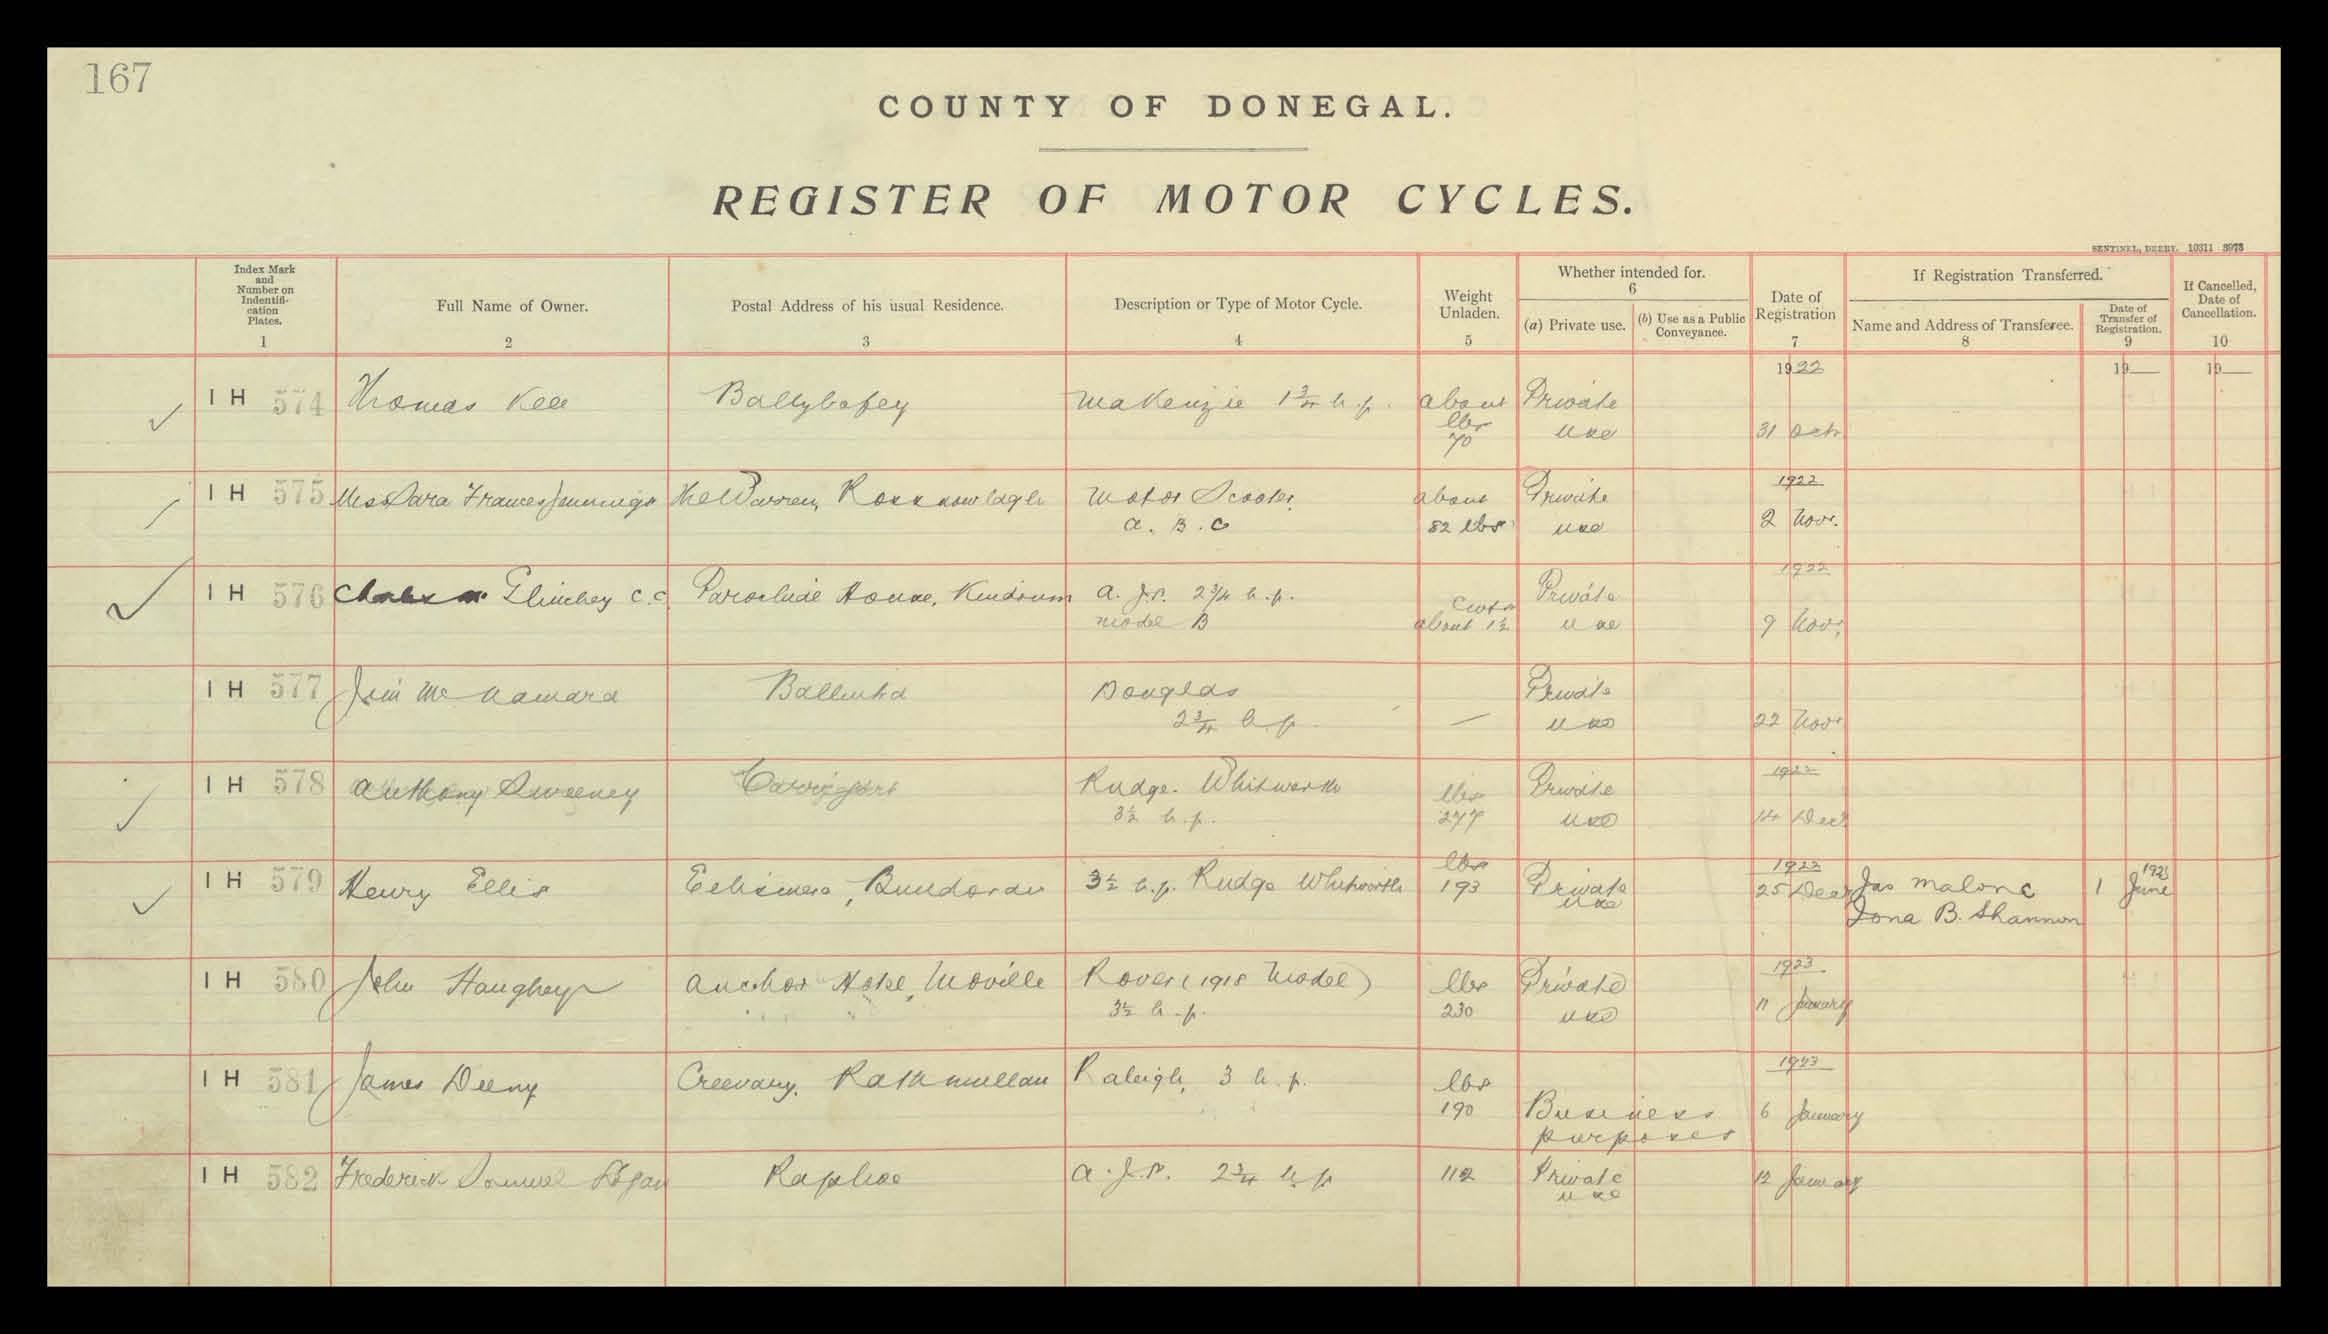 167
COUNTY OF DONEGAL.
REGISTER OF MOTOR CYCLES.
SENTINEL, DERRY. 10311 3973
Index Mark and Number on Indentifi-cation Plates. 1
Full Name of Owner. 2
Postal Address of his usual Residence. 3
Description or Type of Motor Cycle. 4
Weight Unladen. 5
Whether intended for. 6
(a) Private use.
(b) Use as a Public Conveyance.
Date of Registration 7
If Registration Transferred.
Name and Address of Transferee. 8
Date of Transfer of Registration. 9
If Cancelled, Date of Cancellation. 10
1922 19 19
I H 574 Thomas Kee Ballybofey MaKenzie 1 3/4 h.p. about Private
lbs
70 use 31 Octr
I H 575 Miss Sara Frances Jennings The Warren, Rossnowlagh Motor Scooter, about Private 1922
A. B. C 82 lbs use 2 Novr.
I H 576 Charles Mc Glinchey C.C Parochial House, Kindrum A. J.S. 2 3/4 h.p. Private 1922
model B cwts about 1 1/2 use 9 Novr.
I H 577 Jim McNamara Ballintra Douglas Private
2 3/4 h.p. — use 22 Novr
I H 578 Anthony Sweeney Rudge. Whitworth lbs Private 1922
3 1/2 h.p. 277 use 14 Decr
I H 579 Henry Ellis Bundoran 3 1/2 h.p. Rudge Whitworth lbs 193 Private use 1922 25 Decr Jas Malone 1 June
Iona B. Shannon
I H 580 John Haughey Anchor Hotel, Moville Rover (1918 Model) lbs Private 1923
3 1/2 h.p. 230 use 11 January
I H 581 James Deeny Creevary, Rathmullan Raleigh, 3 h.p. lbs 1923
190 Business 6 January
purposes
I H 582 Frederick Samuel Logan Raphoe A. J.S. 2 3/4 h.p 112 Private 12 January
use